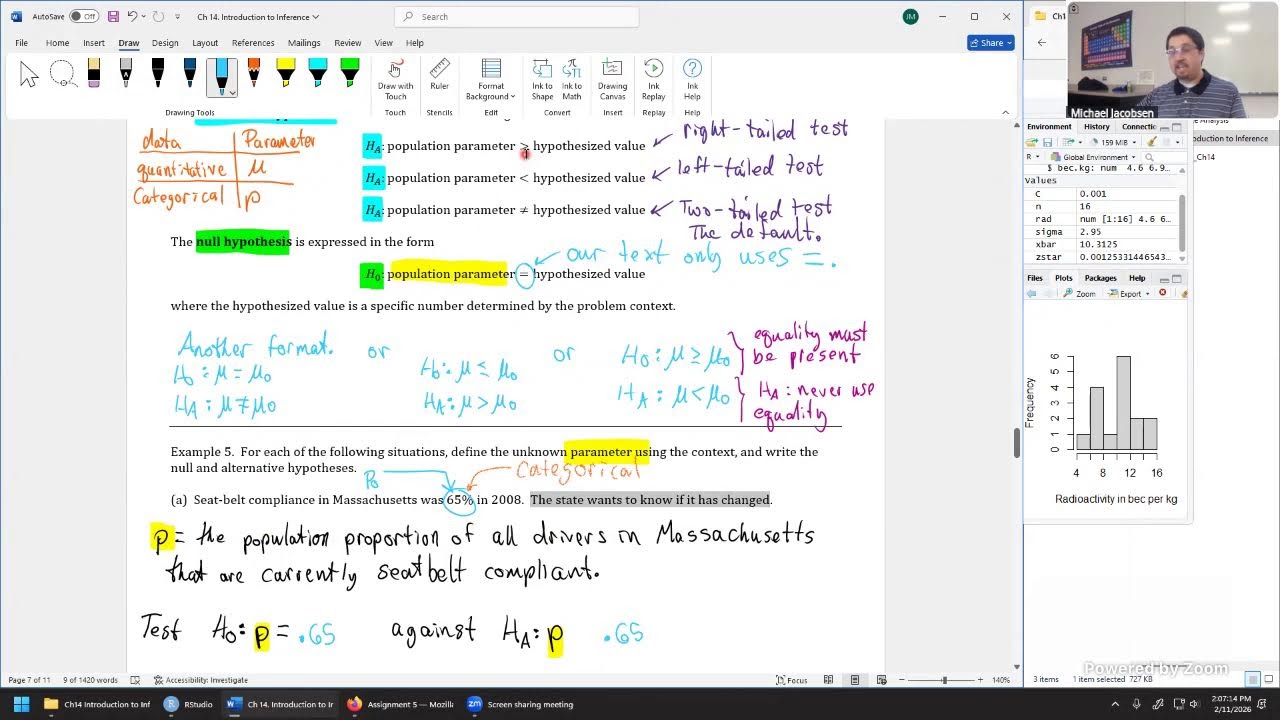 AutoSave Off Ch 14. Introduction to Inference Search JM
File Home Insert Draw Design Layout References Mailings Review View Help Share
Draw with Touch Ruler Format Background Ink to Shape Ink to Math Drawing Canvas Ink Replay Ink Help
Drawing Tools Touch Stencils Edit Convert Insert Replay Help
Ch1
Michael Jacobsen
data Parameter
quantitative μ
Categorical p
HA: population parameter > hypothesized value right-tailed test
HA: population parameter < hypothesized value left-tailed test
HA: population parameter ≠ hypothesized value Two-tailed test
The default.
The null hypothesis is expressed in the form
our text only uses =.
H0: population parameter = hypothesized value
where the hypothesized value is a specific number determined by the problem context.
Another format. or or
H0: μ = μ0 H0: μ ≤ μ0 H0: μ ≥ μ0 equality must be present
HA: μ ≠ μ0 HA: μ > μ0 HA: μ < μ0 HA: never use equality
Example 5. For each of the following situations, define the unknown parameter using the context, and write the
null and alternative hypotheses.
P0 Categorical
(a) Seat-belt compliance in Massachusetts was 65% in 2008. The state wants to know if it has changed.
p = the population proportion of all drivers in Massachusetts
that are currently seatbelt compliant.
Test H0: p = .65 against HA: p .65
Environment History Connectic
159 MiB
R Global Environment
$ bec.kg: num 4.6 6.9…
Values
C 0.001
n 16
rad num [1:16] 4.6 6…
sigma 2.95
xbar 10.3125
zstar 0.00125331446543…
_Ch14
Files Plots Packages Help
Zoom Export
Frequency
6
5
4
3
2
1
0
4 8 12 16
Radioactivity in bec per kg
Powered by Zoom
Page 7 of 11 9 of 1420 words Accessibility: Investigate Focus 140%
3 items 1 item selected 727 KB
Ch14 Introduction to Inf RStudio Ch 14. Introduction to Ir Assignment 5 — Mozilla Screen sharing meeting
2:07:14 PM
2/11/2026